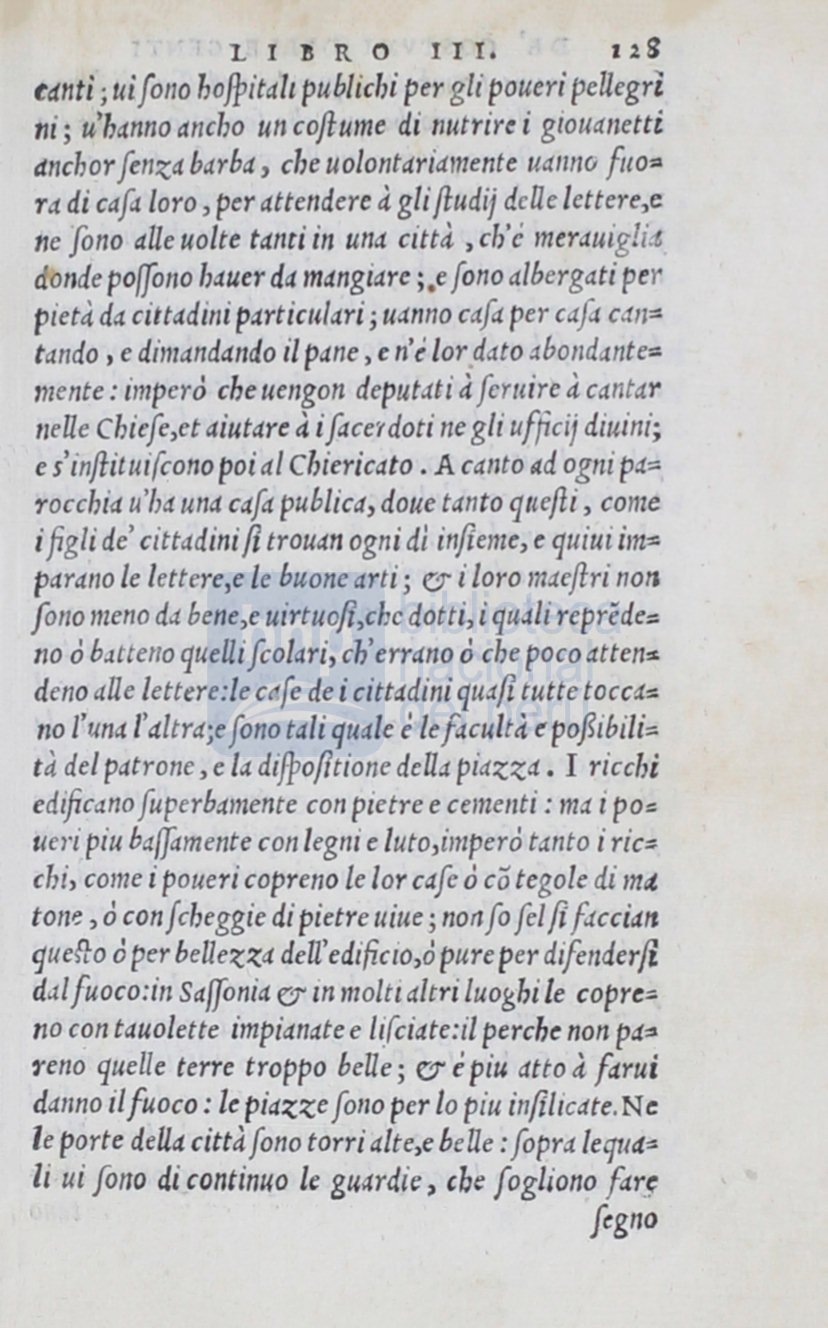 LIBRO III. 128
canti; ui ſono hoſpitali publichi per gli poueri pellegri
ni; u'hanno ancho un coſtume di nutrire i giouanetti
anchor ſenza barba, che uolontariamente uanno fuo=
ra di caſa loro, per attendere à gli ſtudij delle lettere,e
ne ſono alle uolte tanti in una città, ch'é merauiglia
donde poſſono hauer da mangiare; e ſono albergati per
pietà da cittadini particulari; uanno caſa per caſa can=
tando, e dimandando il pane, e n'é lor dato abondante=
mente: imperò che uengon deputati à ſeruire à cantar
nelle Chieſe,et aiutare à i ſacerdoti ne gli ufficij diuini;
e s'inſtituiſcono poi al Chiericato. A canto ad ogni pa=
rocchia u'ha una caſa publica, doue tanto queſti, come
i figli de' cittadini ſi trouan ogni dì inſieme, e quiui im=
parano le lettere,e le buone arti; & i loro maeſtri non
ſono meno da bene,e uirtuoſi,che dotti, i quali reprẽde=
no ò batteno quelli ſcolari, ch'errano ò che poco atten=
deno alle lettere:le caſe de i cittadini quaſi tutte tocca=
no l'una l'altra;e ſono tali quale é le facultà e poßibili=
tà del patrone, e la diſpoſitione della piazza. I ricchi
edificano ſuperbamente con pietre e cementi: ma i po=
ueri piu baſſamente con legni e luto,imperò tanto i ric=
chi, come i poueri copreno le lor caſe ò cõ tegole di ma
tone, ò con ſcheggie di pietre uiue; non ſo ſel ſi faccian
queſto ò per bellezza dell'edificio,ò pure per difenderſi
dal fuoco:in Saſſonia & in molti altri luoghi le copre=
no con tauolette impianate e liſciate:il perche non pa=
reno quelle terre troppo belle; & é piu atto à farui
danno il fuoco: le piazze ſono per lo piu inſilicate. Ne
le porte della città ſono torri alte,e belle: ſopra lequa=
li ui ſono di continuo le guardie, che ſogliono fare
ſegno
biblioteca
nacional
del perú